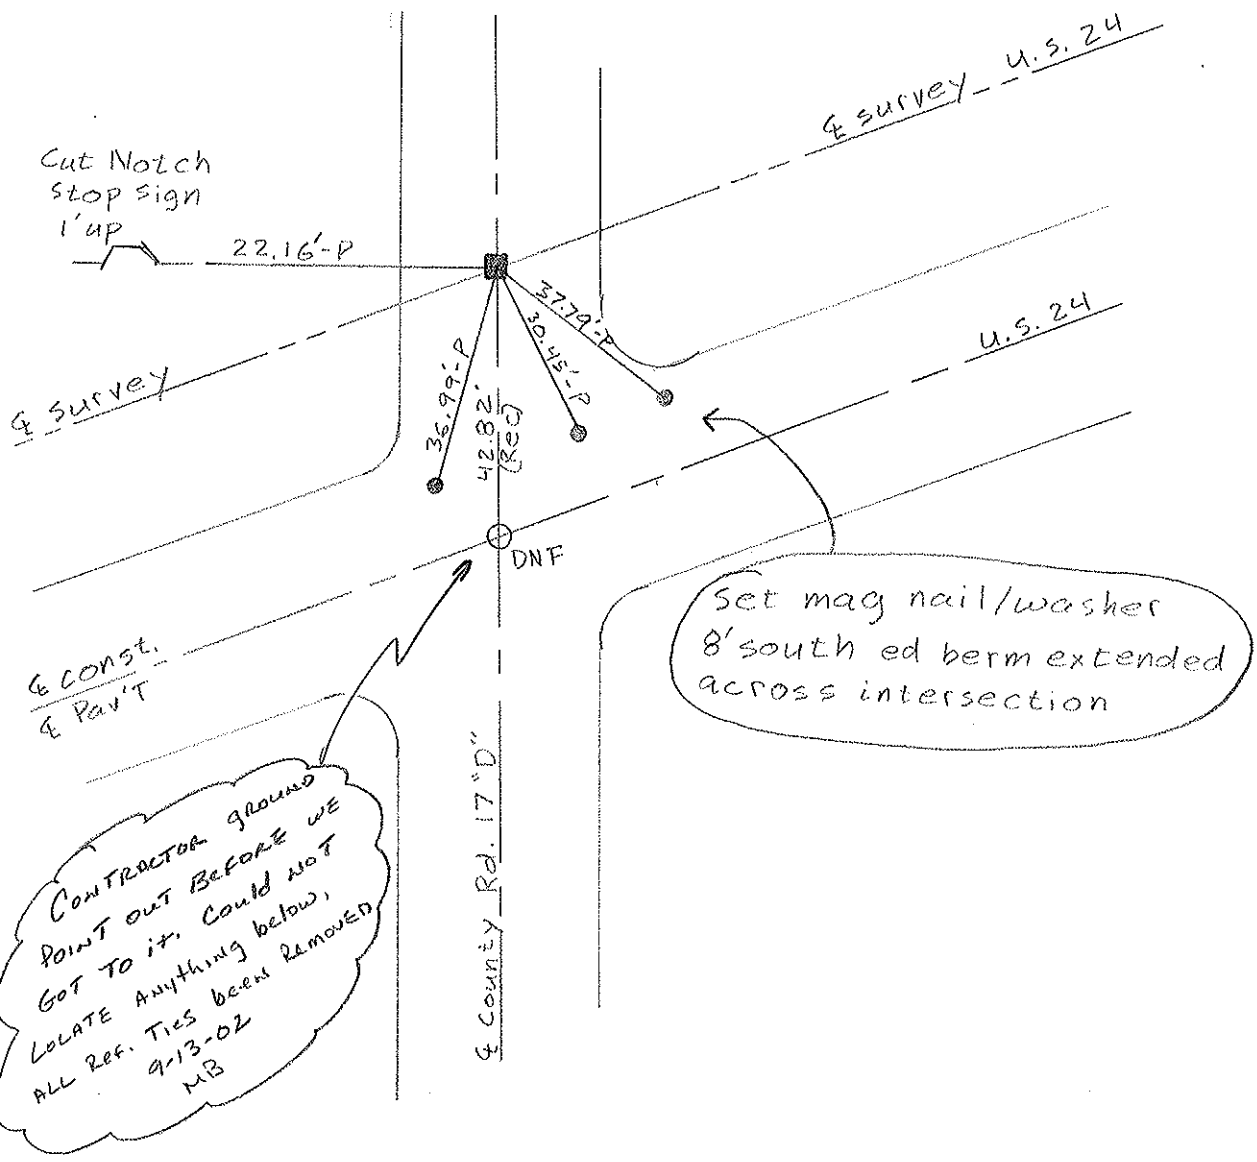 U.S. 24
℄ survey
Cut Notch
stop sign
1'up
22.16'-P
37.79'-P
30.45'-P
36.99'-P
42.82'
(Rec)
U.S. 24
℄ survey
DNF
Set mag nail/washer
8' south ed berm extended
across intersection
℄ const.
℄ Pav'T
℄ County Rd. 17 "D"
CONTRACTOR GROUND
POINT OUT BEFORE WE
GOT TO it. Could NOT
LOCATE ANything below,
ALL Ref. Ties been REMOVED
9-13-02
MB